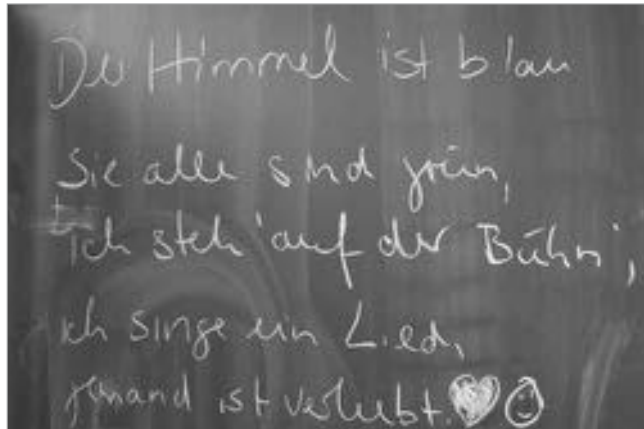 Der Himmel ist blau
Sie alle sind grün,
ich steh' auf der Bühn',
ich singe ein Lied,
jemand ist verliebt.